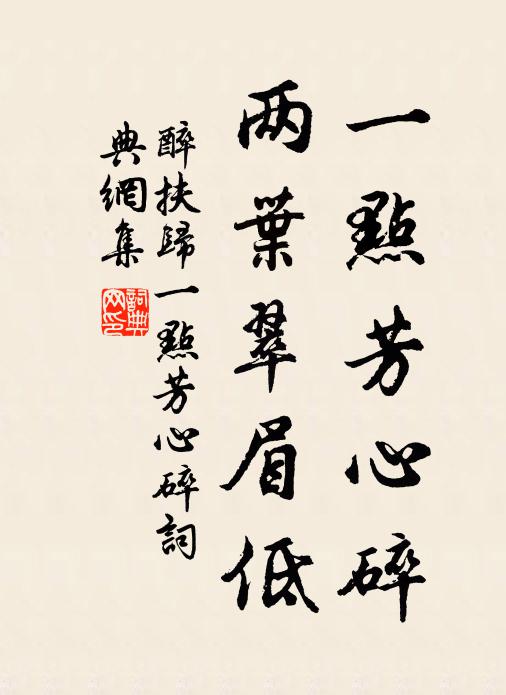 一點芳心碎
两葉翠眉低
醉扶歸一點芳心碎詞
典網集
詞典
网印